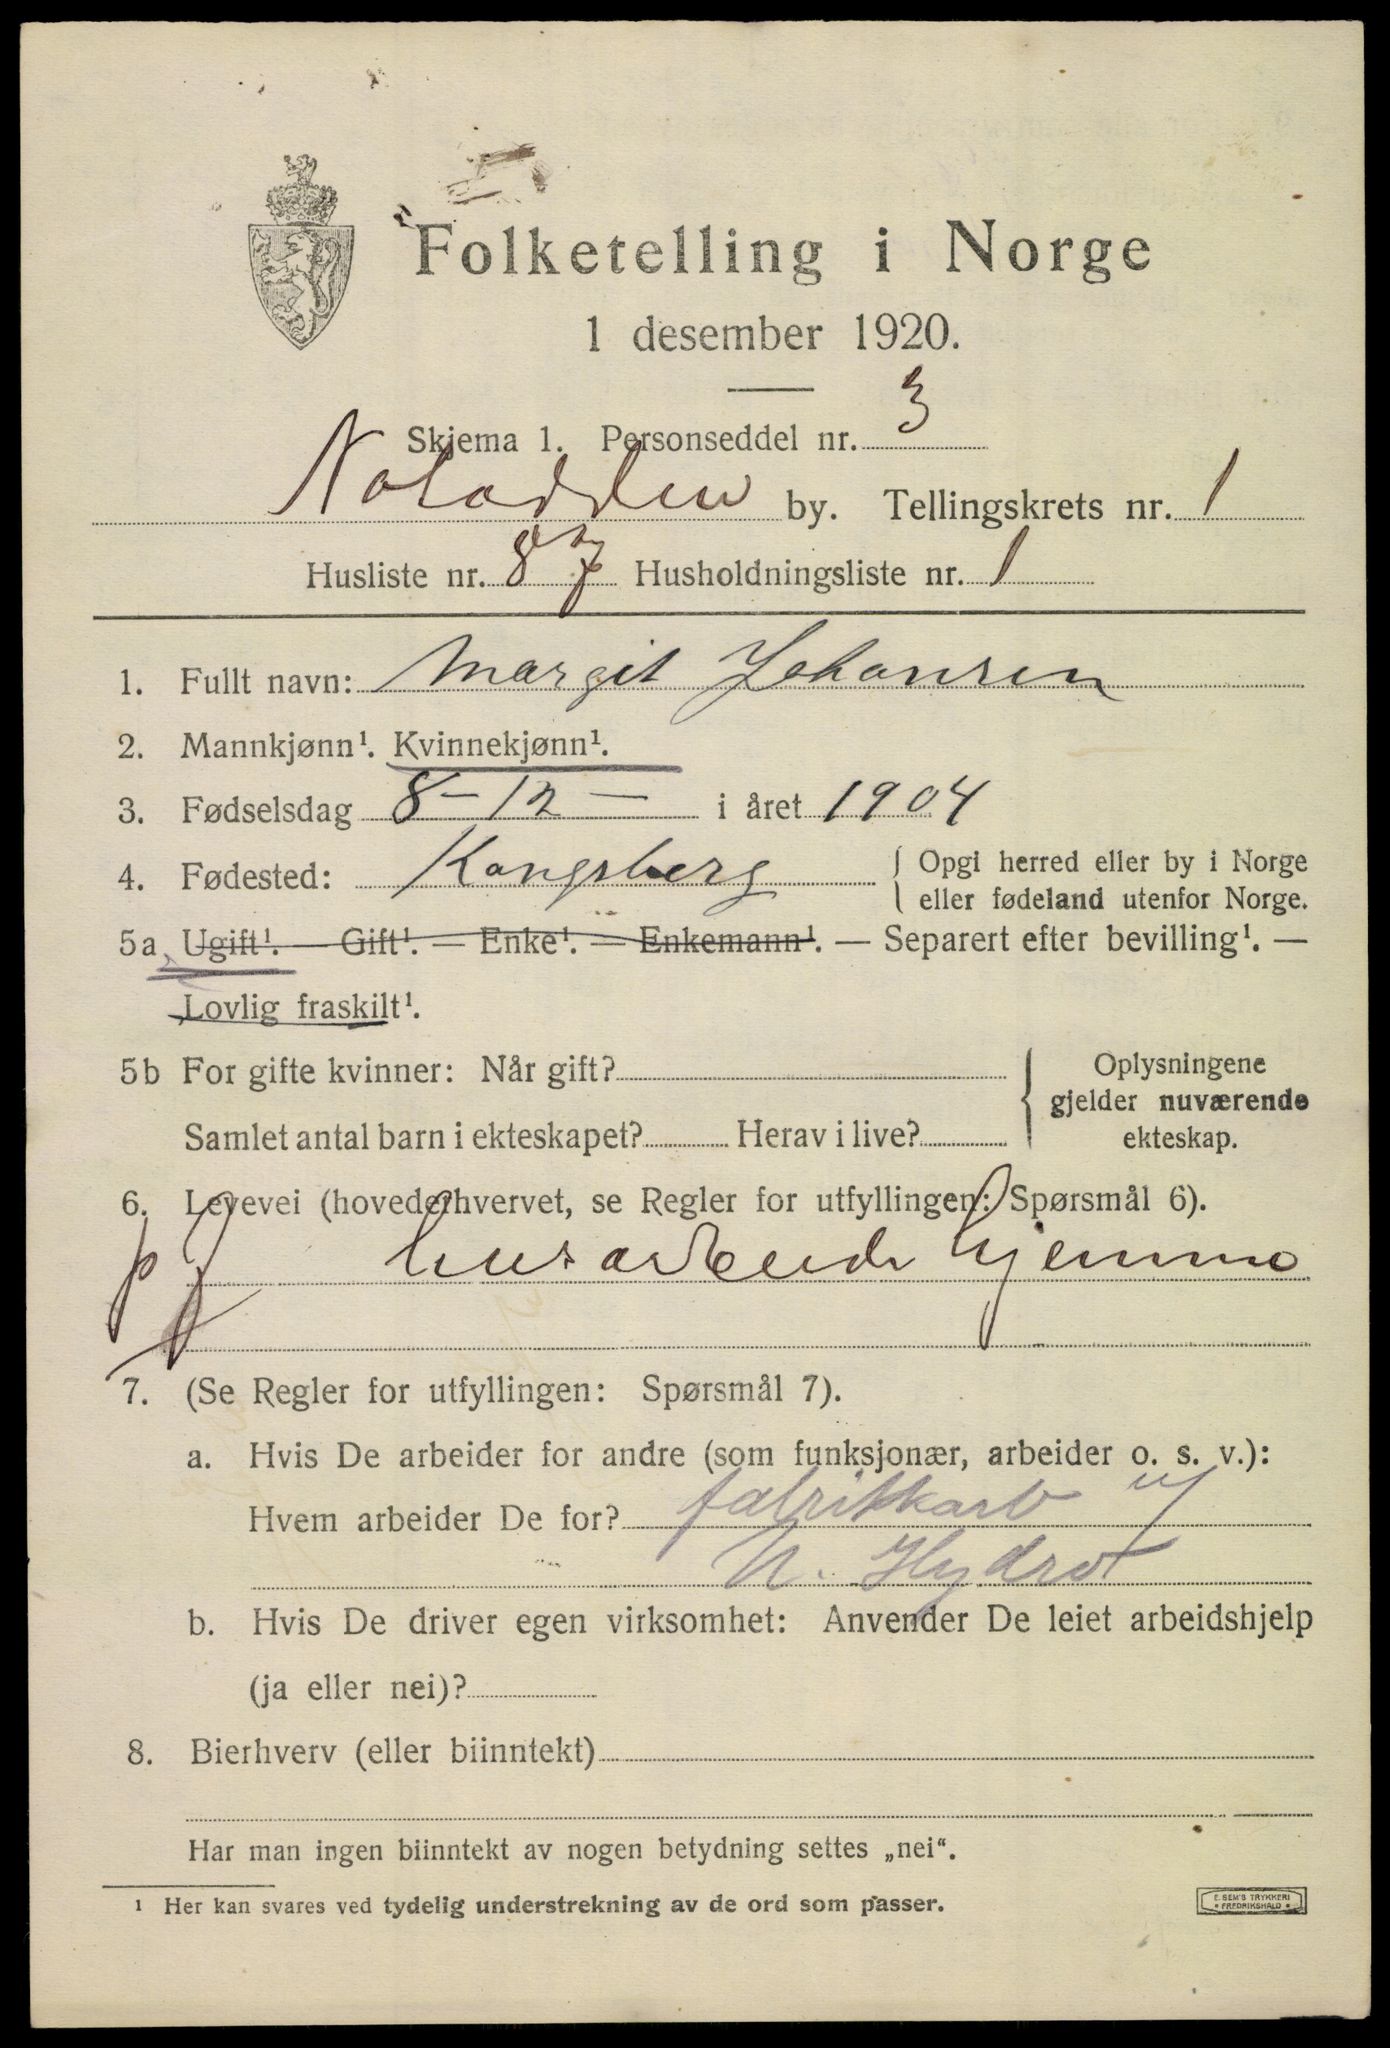 Folketelling i Norge
1 desember 1920.
Skjema 1. Personseddel nr. 3
Notodden by. Tellingskrets nr. 1
Husliste nr. 87 Husholdningsliste nr. 1
1. Fullt navn: Margit Johansen
2. Mannkjønn¹. Kvinnekjønn¹.
3. Fødselsdag 8 - 12 - i året 1904
4. Fødested: Kongsberg { Opgi herred eller by i Norge
eller fødeland utenfor Norge.
5a Ugift¹. — Gift¹. — Enke¹. — Enkemann¹. — Separert efter bevilling¹. —
Lovlig fraskilt¹.
5b For gifte kvinner: Når gift? { Oplysningene
gjelder nuværende
Samlet antal barn i ekteskapet? Herav i live? ekteskap.
6. Levevei (hovederhvervet, se Regler for utfyllingen: Spørsmål 6).
husarbeide hjemme
7. (Se Regler for utfyllingen: Spørsmål 7).
a. Hvis De arbeider for andre (som funksjonær, arbeider o. s. v.):
Hvem arbeider De for? fabrikkarb v/
N. Hydro
b. Hvis De driver egen virksomhet: Anvender De leiet arbeidshjelp
(ja eller nei)?
8. Bierhverv (eller biinntekt)
Har man ingen biinntekt av nogen betydning settes „nei“.
¹ Her kan svares ved tydelig understrekning av de ord som passer.
E. SEM'S TRYKKERI
FREDRIKSHALD